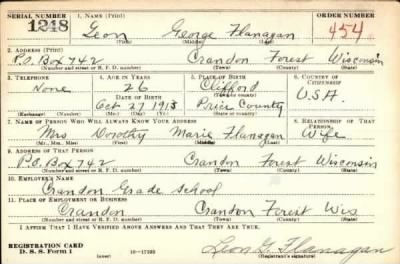 SERIAL NUMBER 1. NAME (Print) ORDER NUMBER
1248 Leon George Flanagan 454
(First) (Middle) (Last)
2. ADDRESS (Print)
P.O. Box 742 Crandon Forest Wisconsin
(Number and street or R. F. D. number) (Town) (County) (State)
3. TELEPHONE 4. AGE IN YEARS 5. PLACE OF BIRTH 6. COUNTRY OF CITIZENSHIP
None 26 Clifford
DATE OF BIRTH (Town or county)
Oct 27 1913 Price County U.S.A.
(Exchange) (Number) (Mo.) (Day) (Yr.) (State or country)
7. NAME OF PERSON WHO WILL ALWAYS KNOW YOUR ADDRESS 8. RELATIONSHIP OF THAT PERSON
Mrs Dorothy Marie Flanagan Wife
(Mr., Mrs., Miss) (First) (Middle) (Last)
9. ADDRESS OF THAT PERSON
P.O. Box 742 Crandon Forest Wisconsin
(Number and street or R. F. D. number) (Town) (County) (State)
10. EMPLOYER'S NAME
Crandon Grade School
11. PLACE OF EMPLOYMENT OR BUSINESS
Crandon Crandon Forest Wis
(Number and street or R. F. D. number) (Town) (County) (State)
I AFFIRM THAT I HAVE VERIFIED ABOVE ANSWERS AND THAT THEY ARE TRUE.
REGISTRATION CARD
D. S. S. Form 1 (over) 16—17105 Leon G. Flanagan
(Registrant's signature)